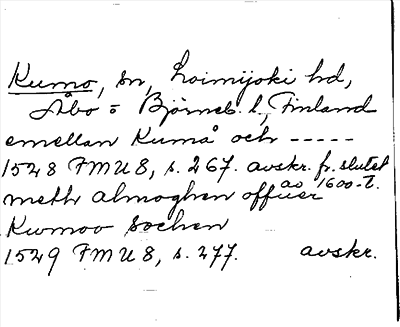 Kumo, sn, Loimijoki hd,
Åbo o Björneb. l., Finland
emellan Kumå och -----
1528 FMU 8, s. 267. avskr. fr. slutet
av 1600-t.
meth almoghen offuer
Kwmoo sochen
1529 FMU 8, s. 277. avskr.